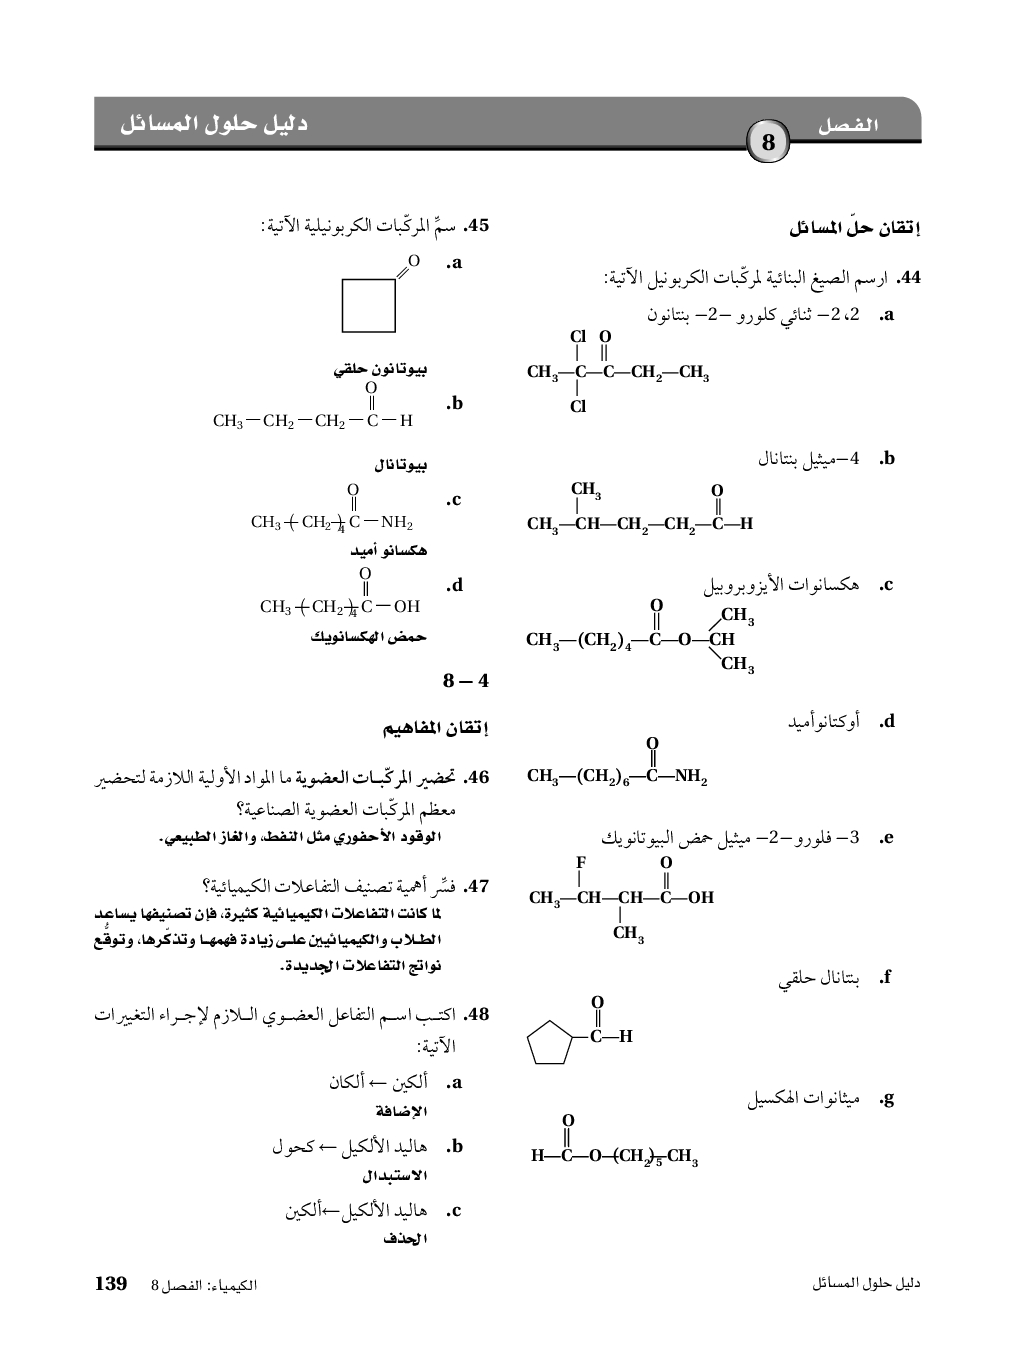 دليل حلول المسائل
الفصل
8
إتقان حلّ المسائل
44. ارسم الصيغ البنائية لمركّبات الكربونيل الآتية:
a. 2، 2– ثنائي كلورو –2– بنتانون
Cl O
CH3—C—C—CH2—CH3
Cl
b. 4–ميثيل بنتانال
CH3 O
CH3—CH—CH2—CH2—C—H
c. هكسانوات الأيزوبروبيل
O CH3
CH3—(CH2)4—C—O—CH
CH3
d. أوكتانوأميد
O
CH3—(CH2)6—C—NH2
e. 3– فلورو–2– ميثيل حمض البيوتانويك
F O
CH3—CH—CH—C—OH
CH3
f. بنتانال حلقي
O
C—H
g. ميثانوات الهكسيل
O
H—C—O—(CH2)5—CH3
45. سمِّ المركّبات الكربونيلية الآتية:
a.
O
بيوتانون حلقي
b.
O
CH3—CH2—CH2—C—H
بيوتانال
c.
O
CH3—(CH2)4—C—NH2
هكسانو أميد
d.
O
CH3—(CH2)4—C—OH
حمض الهكسانويك
8 – 4
إتقان المفاهيم
46. تحضير المركّبات العضوية ما المواد الأولية اللازمة لتحضير
معظم المركّبات العضوية الصناعية؟
الوقود الأحفوري مثل النفط، والغاز الطبيعي.
47. فسِّر أهمية تصنيف التفاعلات الكيميائية؟
لما كانت التفاعلات الكيميائية كثيرة، فإن تصنيفها يساعد
الطلاب والكيميائيين على زيادة فهمها وتذكّرها، وتوقُّع
نواتج التفاعلات الجديدة.
48. اكتب اسم التفاعل العضوي اللازم لإجراء التغييرات
الآتية:
a. ألكين ← ألكان
الإضافة
b. هاليد الألكيل ← كحول
الاستبدال
c. هاليد الألكيل←ألكين
الحذف
دليل حلول المسائل
الكيمياء: الفصل 8 139